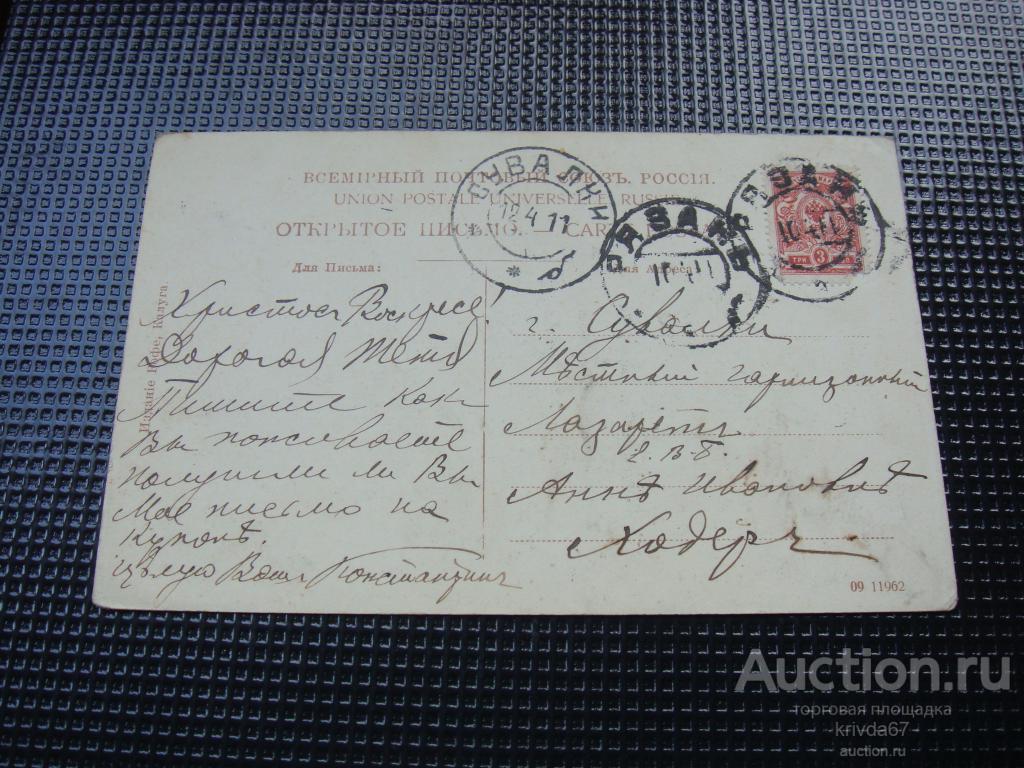 ВСЕМІРНЫЙ ПОЧТОВЫЙ СОЮЗЪ. РОССІЯ.
UNION POSTALE UNIVERSELLE RUSSIE
ОТКРЫТОЕ ПИСЬМО. — CARTE
Для Письма:
Для Адреса:
СУВАЛКИ
12.4.11
РЯЗАНЬ
РЯЗАНЬ
ТРИ 3
Изданіе Калуга
Христосъ Воскресе!
Дорогая Тетя
Пишите какъ
Вы поживаете
получили ли Вы
Мое письмо на
Купонѣ.
Цѣлую Вашъ Константинъ
г. Сувалки
Мѣстный гарнизонный
Лазаретъ
Е. В-Б.
Аннѣ Ивановнѣ
Ходеръ
09 11962
Auction.ru
торговая площадка
krivda67
auction.ru